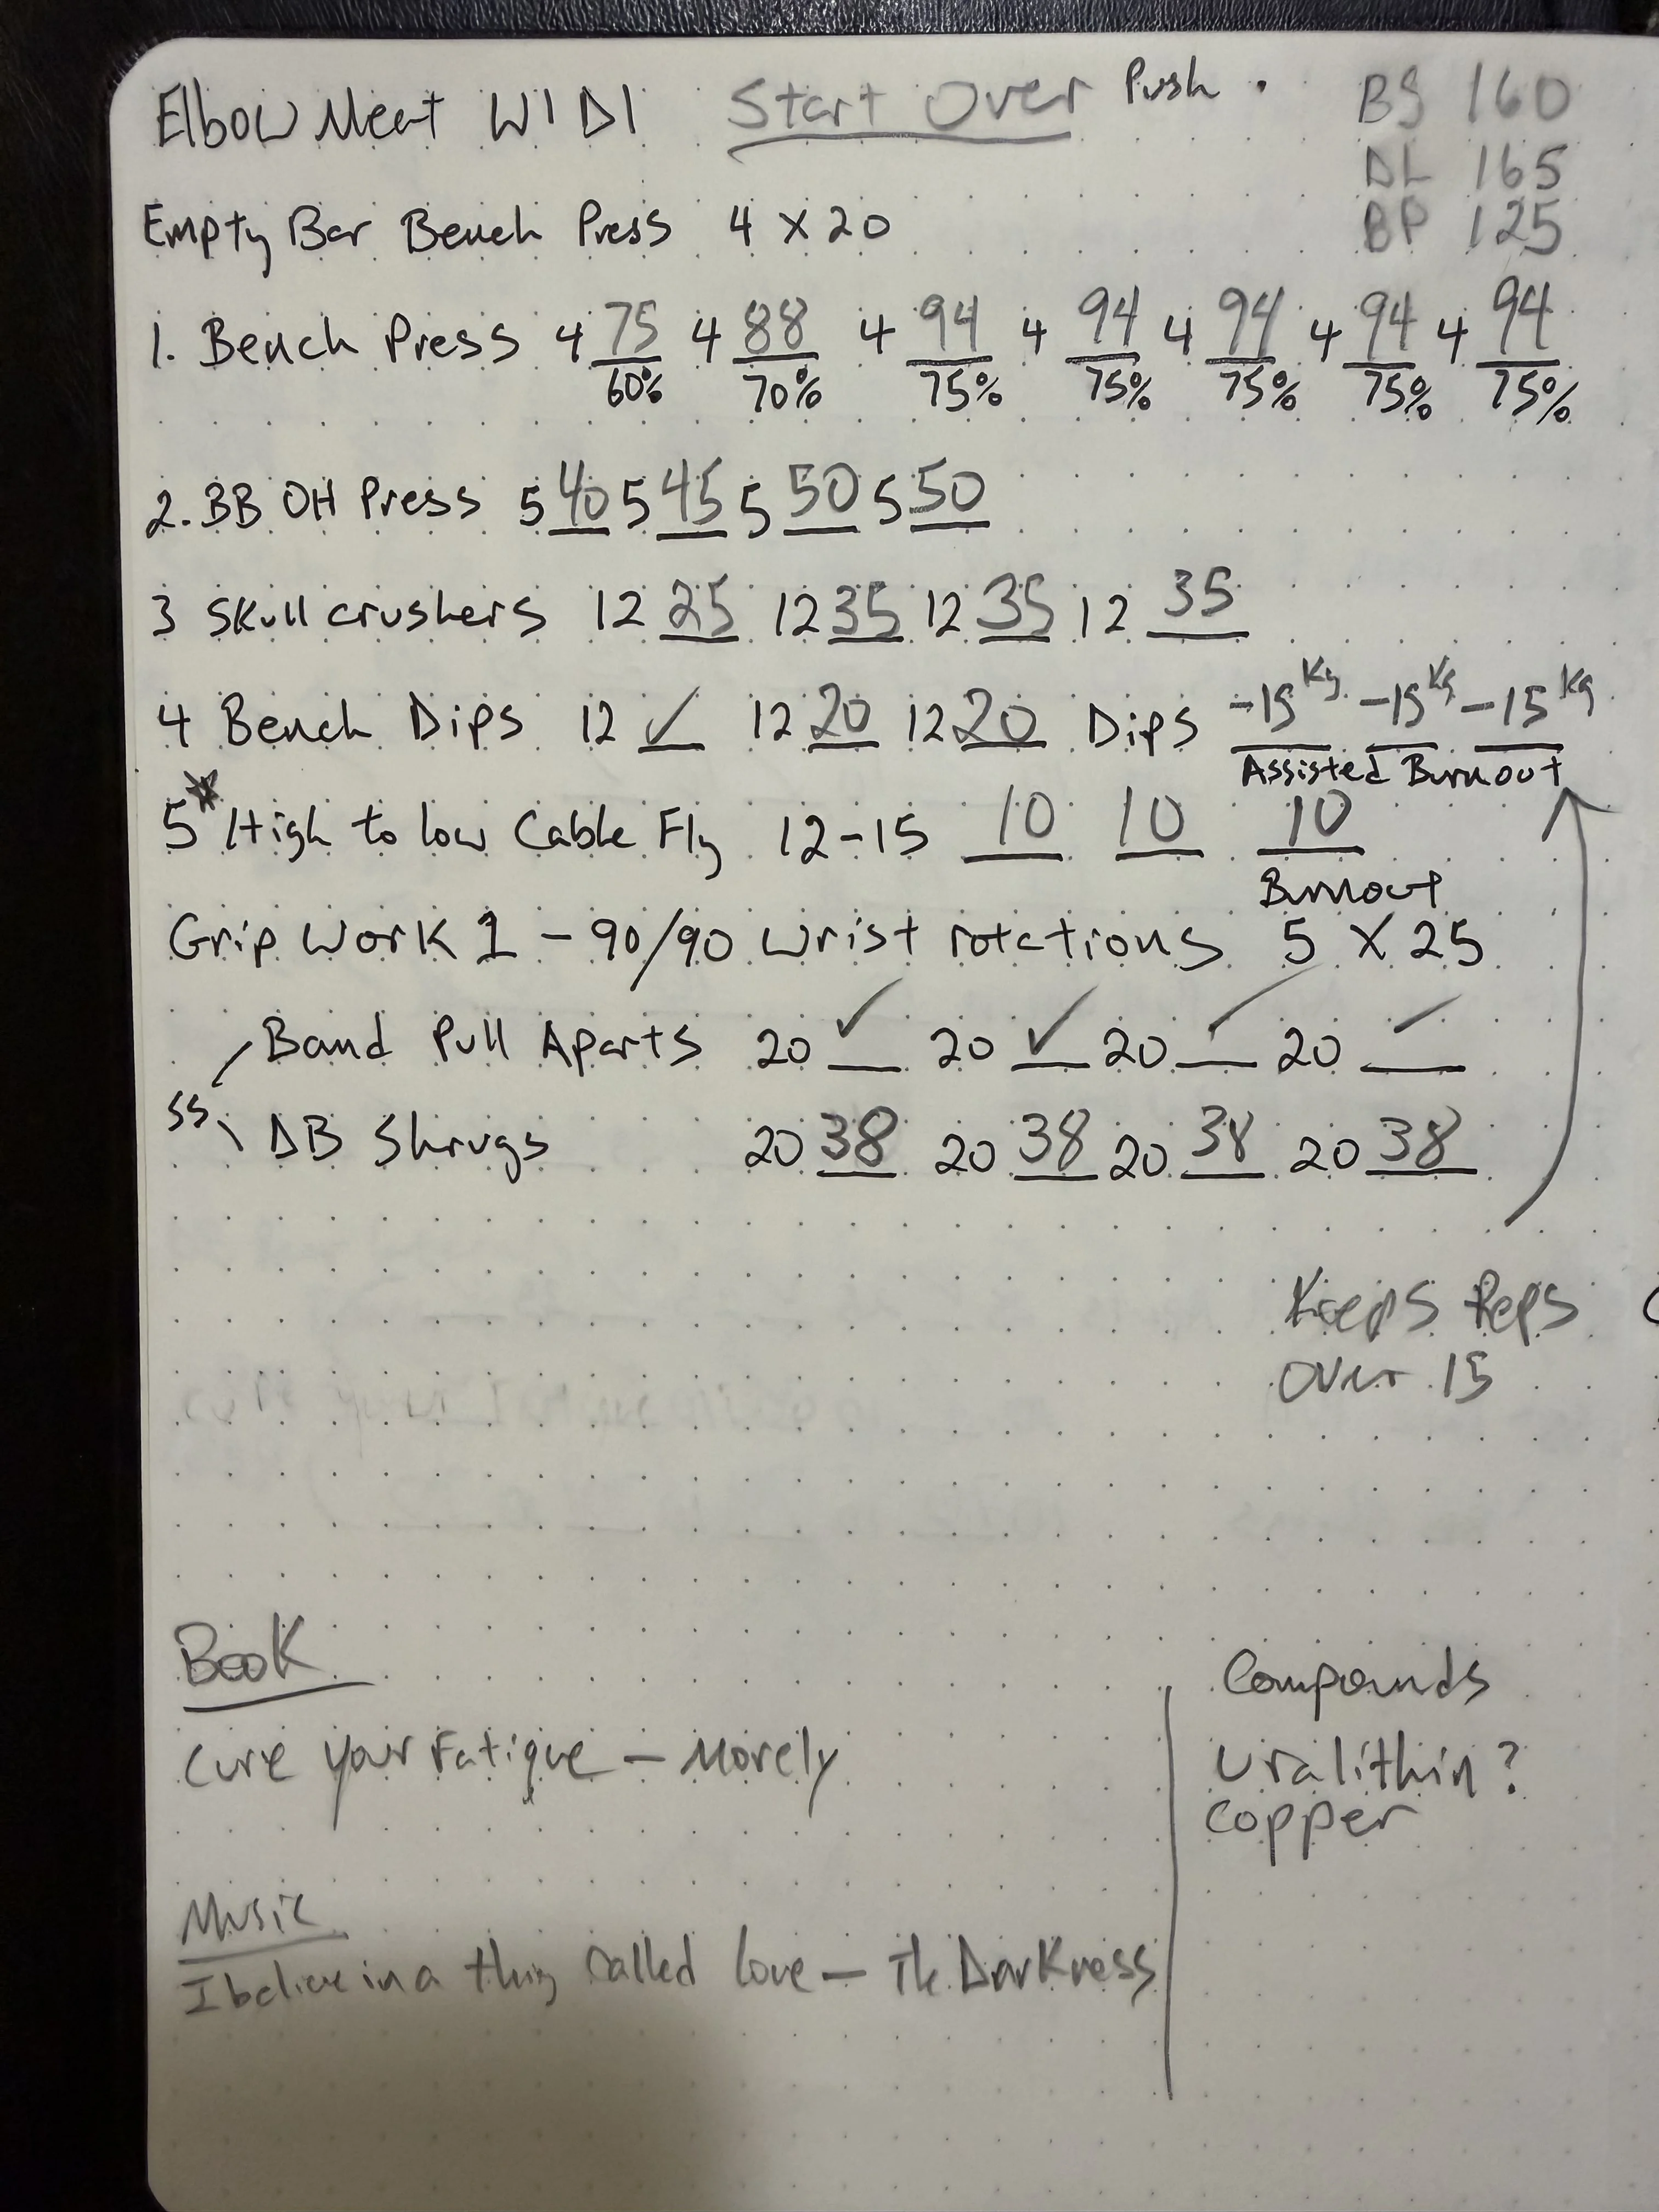 Elbow Meat W1D1 Start Over Push . BS 160
DL 165
Empty Bar Bench Press 4 x 20 BP 125
1. Bench Press 4 75 4 88 4 94 4 94 4 94 4 94 4 94
60% 70% 75% 75% 75% 75% 75%
2. BB OH Press 5 40 5 45 5 50 5 50
3 Skull crushers 12 25 12 35 12 35 12 35
4 Bench Dips 12 ✓ 12 20 12 20 Dips -15 Kg -15 Kg -15 Kg
Assisted Burnout
5* High to low Cable Fly 12-15 10 10 10
Burnout
Grip Work 1 - 90/90 wrist rotations 5 x 25
Band Pull Aparts 20 ✓ 20 ✓ 20 ✓ 20 ✓
SS
DB Shrugs 20 38 20 38 20 38 20 38
Keeps Reps
over 15
Book
Cure your Fatigue - Morely
Compounds
Uralithin?
Copper
Music
I believe in a thing called love - The Darkness